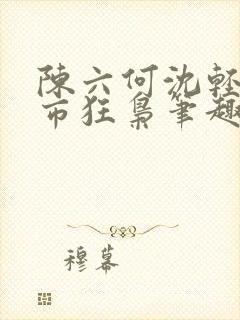 陳六何沈輕
市狂梟筆趣
穆幕